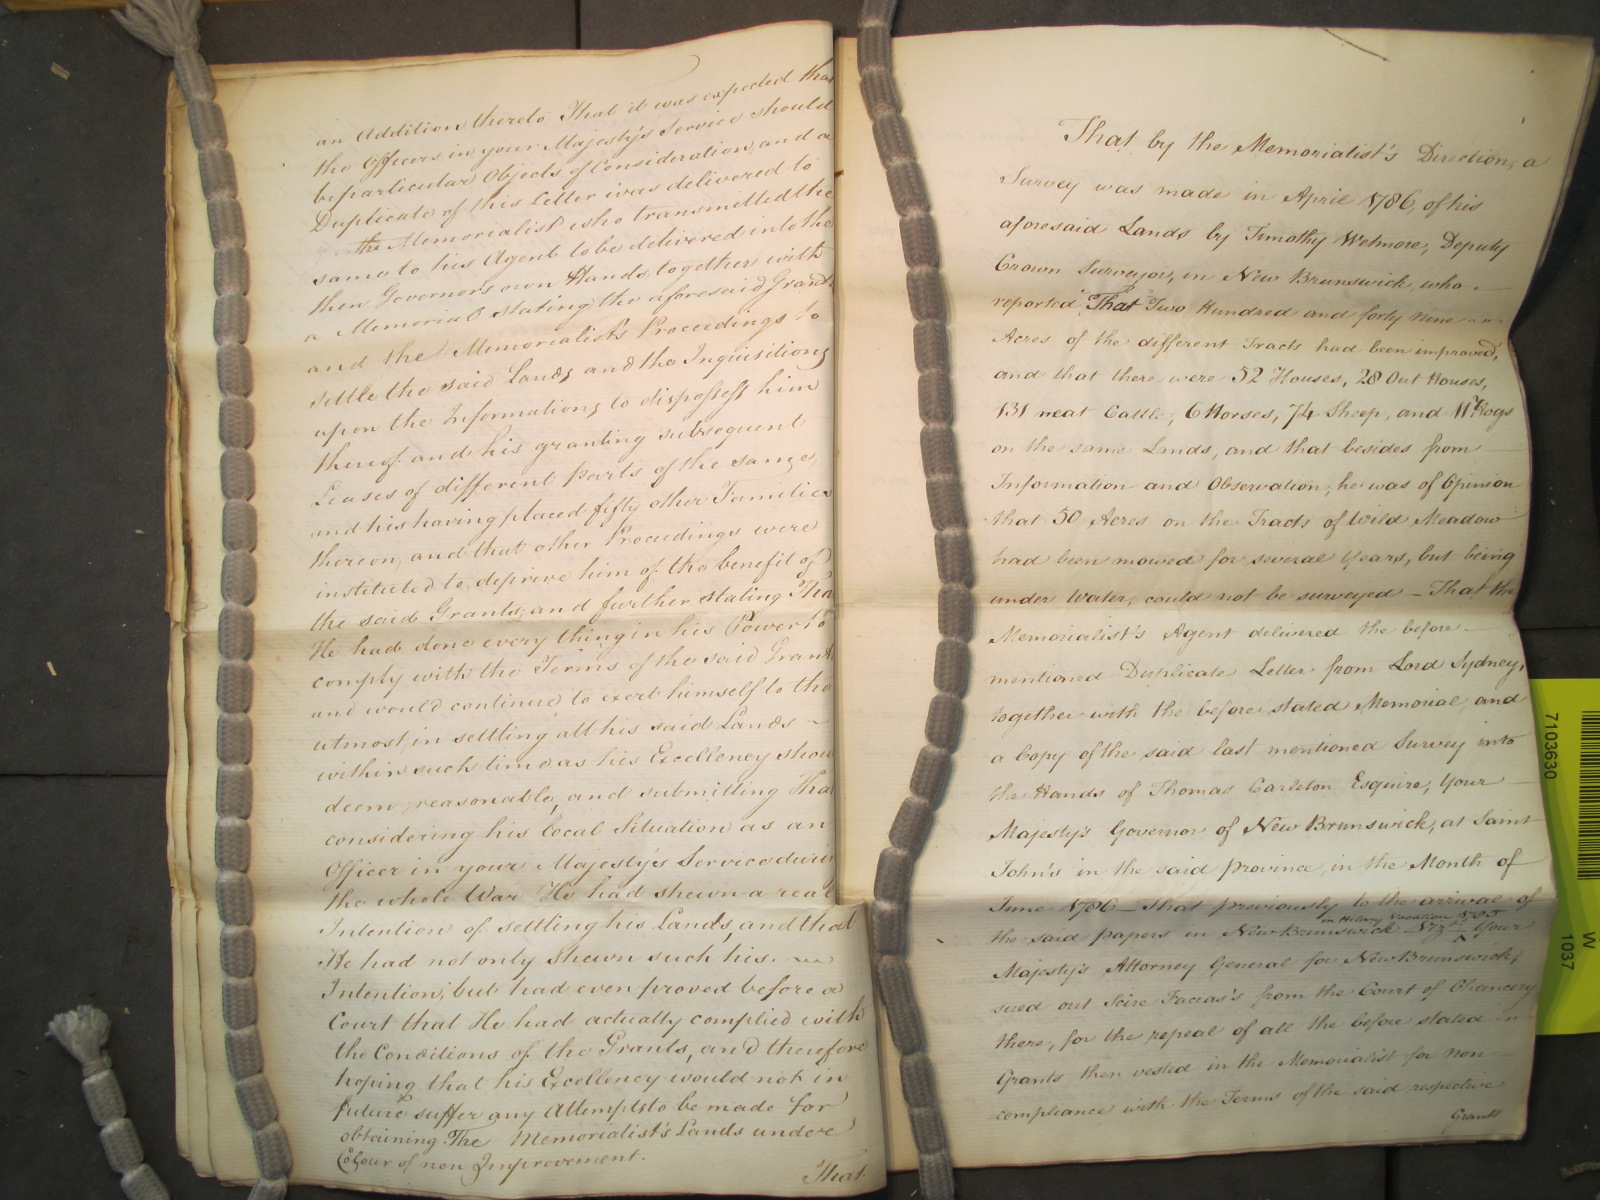 an Addition thereto That it was expected that
the Officers in your Majesty's Service should
be particular Objects of Consideration, and a
Duplicate of this Letter was delivered to
the Memorialist who transmitted the
same to his Agent to be delivered into the
then Governors own Hands, together with
a Memorial stating the aforesaid Grants
and the Memorialist's Proceedings to
settle the said Lands and the Inquisitions
upon the Informations to dispossess him
thereof and his granting subsequent
Leases of different Parts of the same,
and his having placed fifty other Families
thereon, and that other Proceedings were
instituted to deprive him of the benefit of
the said Grants, and further stating Tha
He had done every thing in his Power to
comply with the Terms of the said Grant
and would continue to exert himself to the
utmost, in settling all his said Lands
within such time as his Excellency shou
deem reasonable, and submitting Tha
considering his local Situation as an
Officer in your Majesty's Service durin
the whole War He had shewn a real
Intention of settling his Lands, and that
He had not only shewn such his
Intention, but had even proved before a
Court that He had actually complied with
the Conditions of the Grants, and therefore
hoping that his Excellency would not in
future suffer any Attempts to be made for
obtaining The Memorialist's Lands under
Colour of non Improvement.
That
That by the Memorialist's Direction, a
Survey was made in April 1786, of his
aforesaid Lands by Timothy Wetmore, Deputy
Crown Surveyor, in New Brunswick, who
reported That Two Hundred and forty nine
Acres of the different Tracts had been improved,
and that there were 52 Houses, 28 Out Houses,
131 neat Cattle, 6 Horses, 74 Sheep, and 117 Hogs
on the same Lands, and that besides from
Information and Observation, he was of Opinion
that 50 Acres on the Tracts of Wild Meadow
had been mowed for several Years, but being
under Water, could not be surveyed - That the
Memorialist's Agent delivered the before
mentioned Duplicate Letter from Lord Sydney,
together with the before stated Memorial, and
a Copy of the said last mentioned Survey into
the Hands of Thomas Carleton Esquire, Your
Majesty's Governor of New Brunswick, at Saint
John's in the said Province, in the Month of
June 1786 - That previously to the arrival of
in Hilary Vacation 1785
the said papers in New Brunswick Your
Majesty's Attorney General for New Brunswick,
sued out Scire Facias's from the Court of Chancery
there, for the repeal of all the before stated
Grants then vested in the Memorialist for non
compliance with the Terms of the said respective
Grants
7103630
W
1037